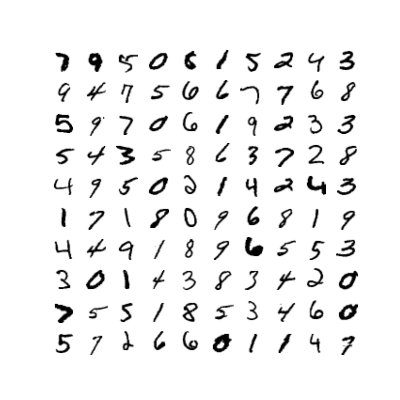 7 9 5 0 6 1 5 2 4 3
9 4 7 5 6 6 7 7 6 8
5 9 7 0 6 1 9 2 3 3
5 4 3 5 8 6 3 7 2 8
4 9 5 0 2 1 4 2 4 3
1 7 1 8 0 9 6 8 1 9
4 4 9 1 8 9 6 5 5 3
3 0 1 4 3 8 3 4 2 0
7 5 5 1 8 5 3 4 6 0
5 7 2 6 6 0 1 1 4 7